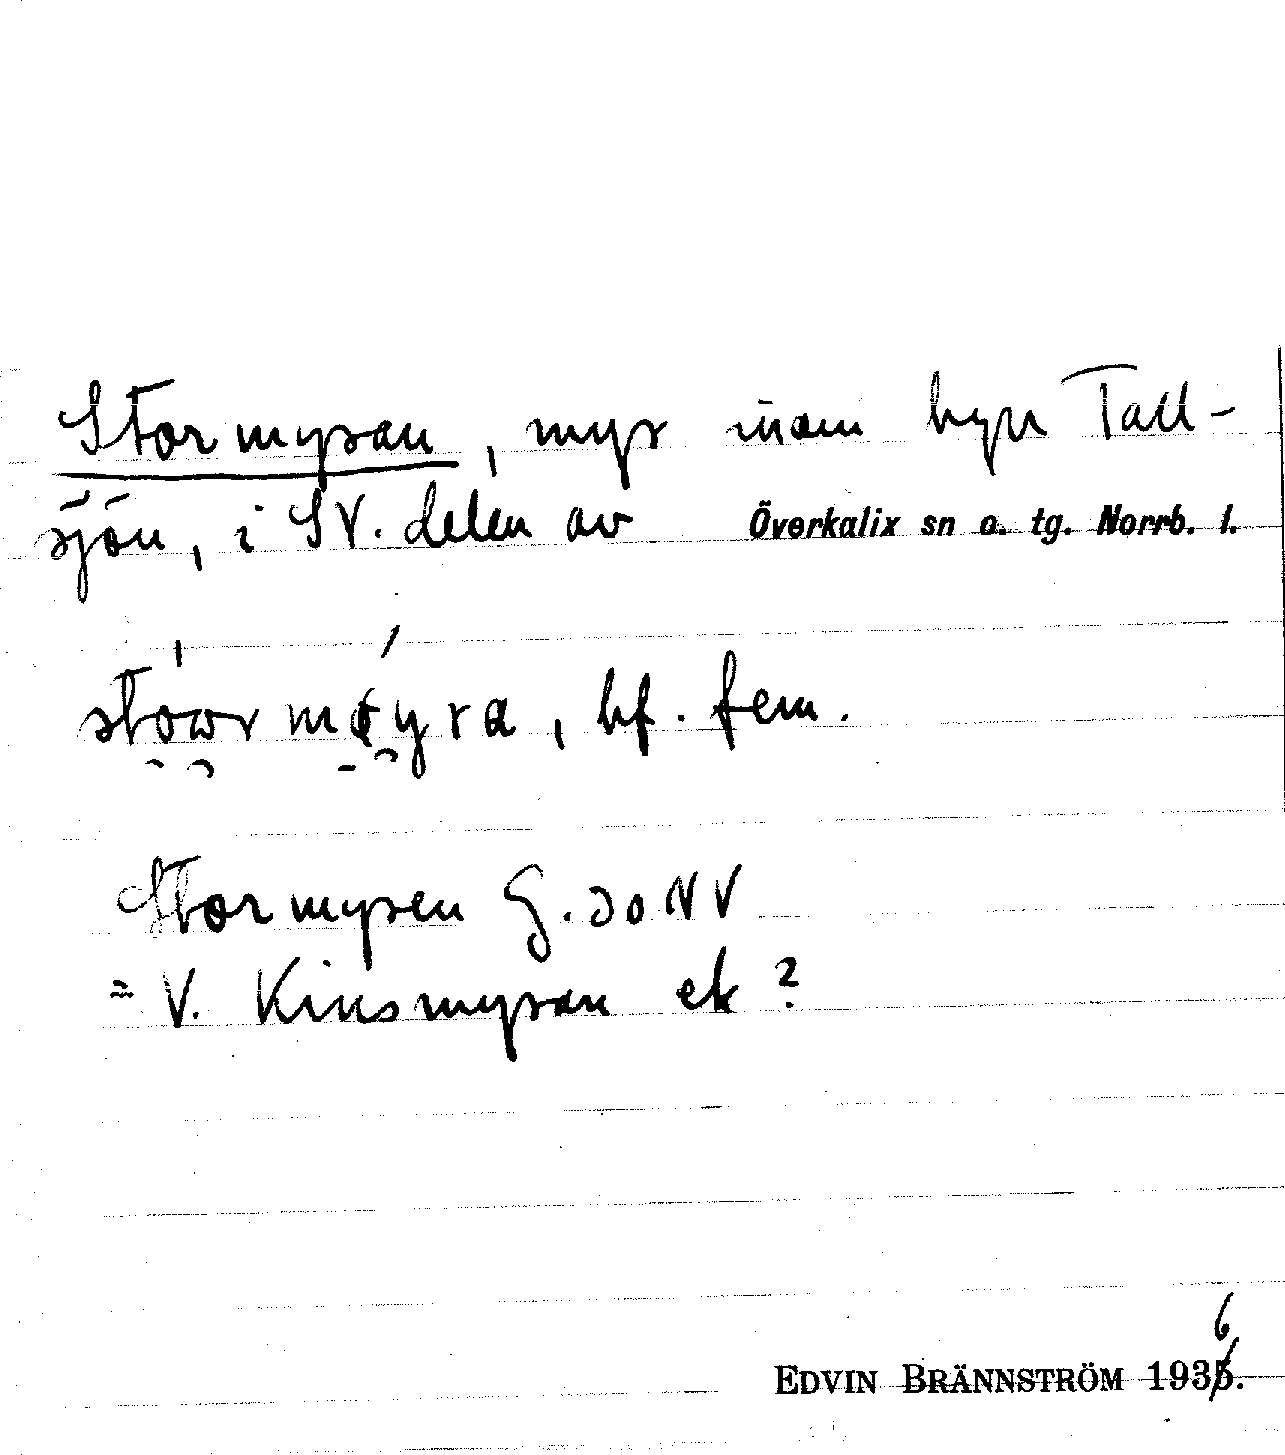 Stormyran, myr inom byn Tall-
sjön, i SV. delen av Överkalix sn o. tg. Norrb. l.
bf. fem.
Stormyren G. 30 NV
= V. Kinsmyran ek?
EDVIN BRÄNNSTRÖM 1936.